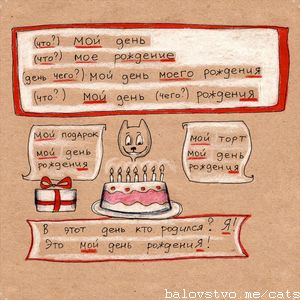 (что?) мой день
(что?) мое рождение
(день чего?) мой день моего рождения
(что?) мой день (чего?) рождения
мой подарок
мой день
рождения
мой торт
мой день
рождения
В этот день кто родился? Я!
Это мой день рождения!
balovstvo.me/cats